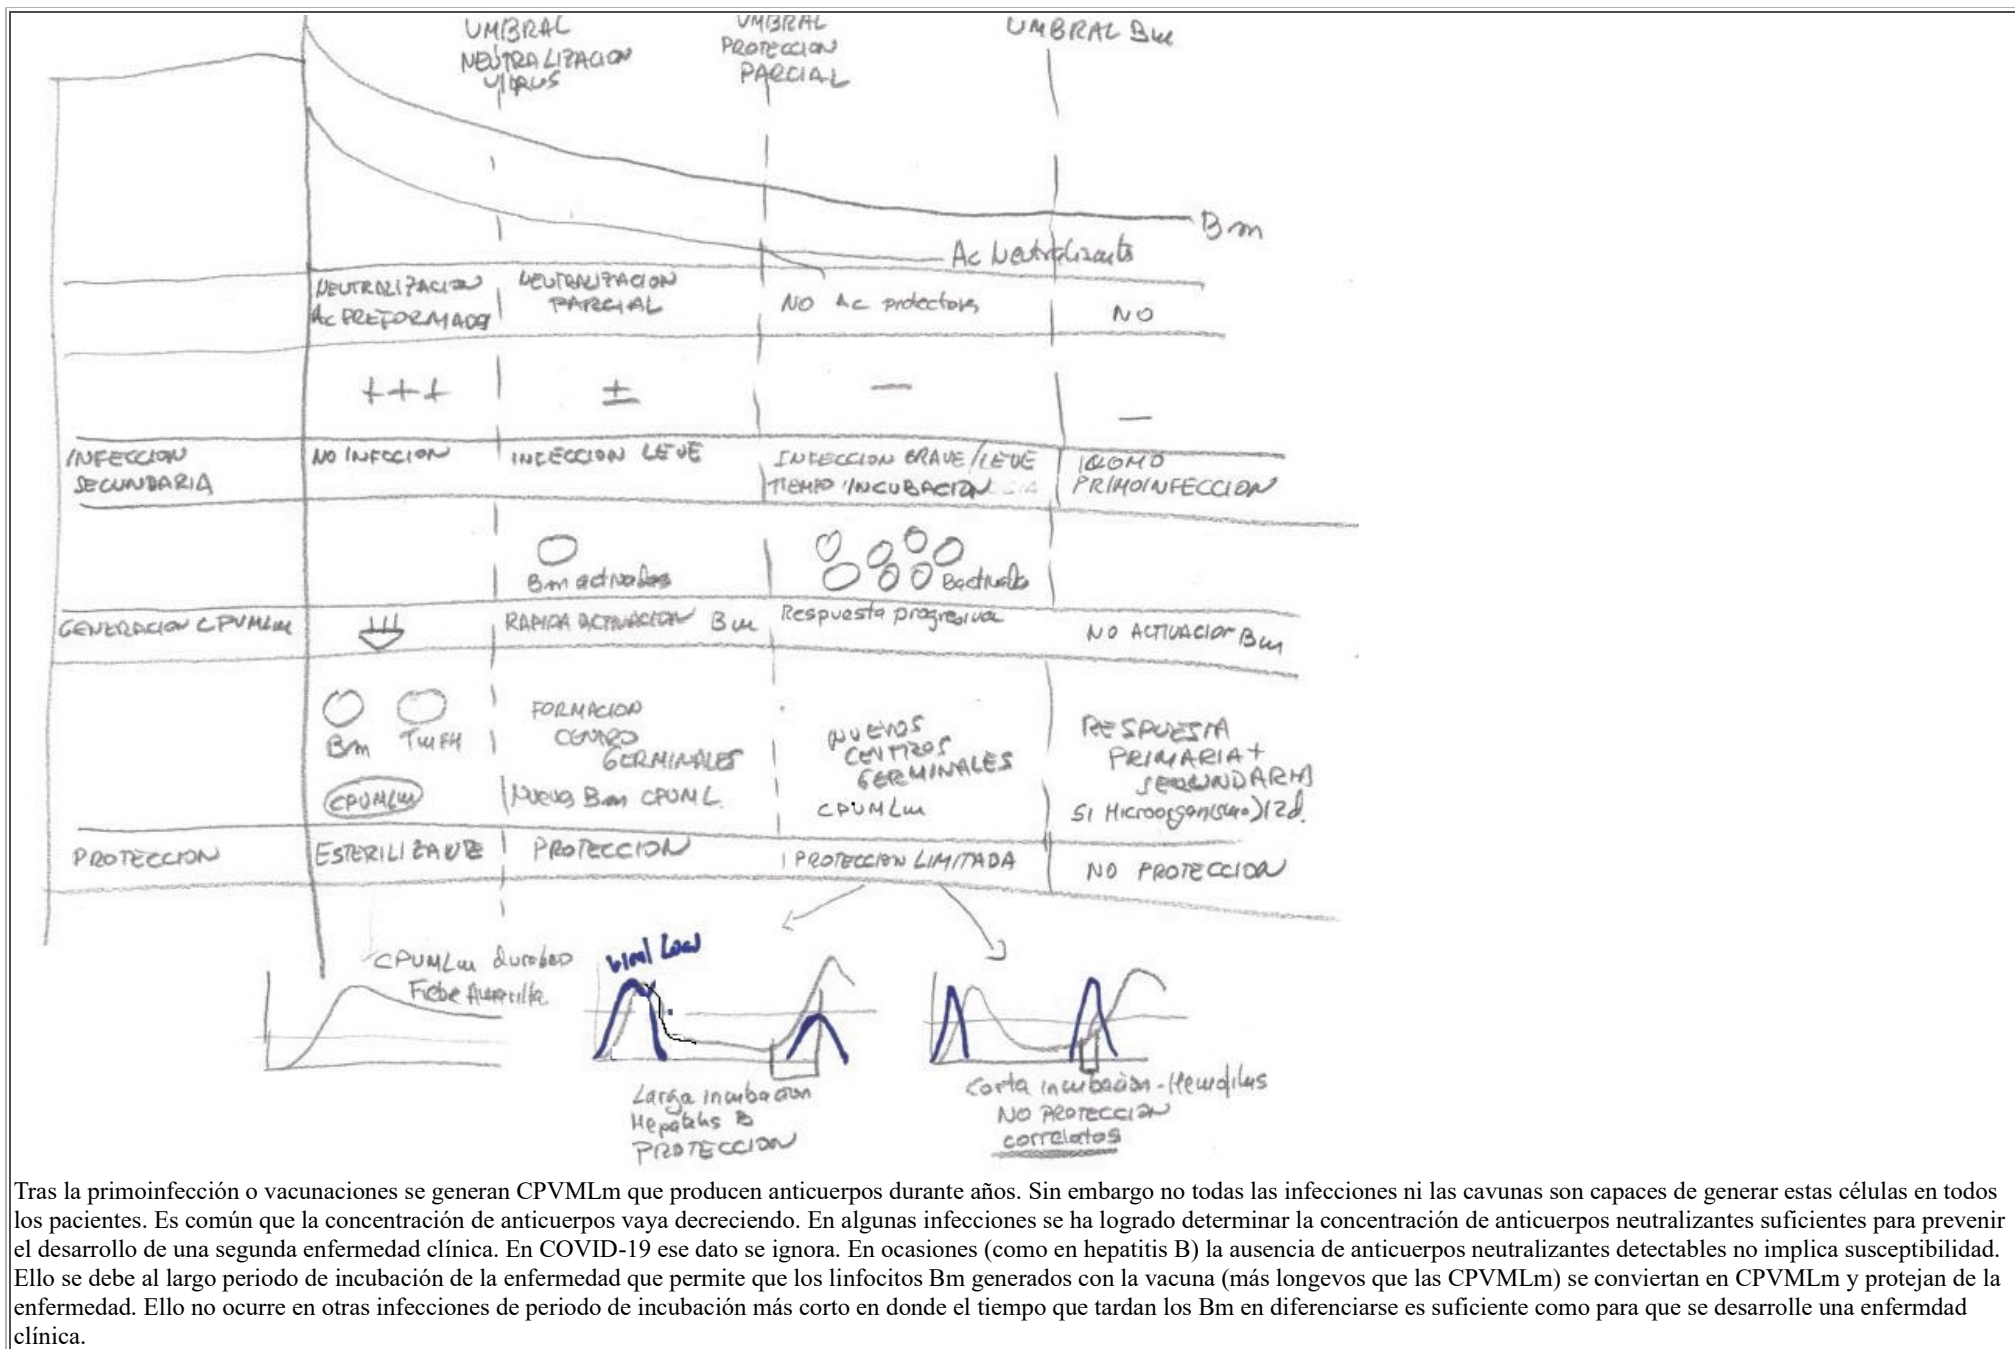 UMBRAL
NEUTRALIZACION
VIRUS
UMBRAL
PROTECCION
PARCIAL
UMBRAL Bm
Bm
Ac Neutralizante
NEUTRALIZACION
Ac PREFORMADOS
NEUTRALIZACION
PARCIAL
NO Ac protectores
NO
+++
±
—
—
INFECCION
SECUNDARIA
NO INFECCION
INFECCION LEVE
INFECCION GRAVE/LEVE
TIEMPO INCUBACION
PRIMOINFECCION
Bm activados
Bactivado
GENERACION CPVMLm
RAPIDA ACTIVACION Bm
Respuesta progresiva
NO ACTIVACION Bm
Bm
TmFH
CPVMLm
FORMACION
CENTRO
GERMINALES
Nuevos Bm CPVML
NUEVOS
CENTROS
GERMINALES
CPVMLm
RESPUESTA
PRIMARIA +
SECUNDARIA
SI Microorganismo 12d.
PROTECCION
ESTERILIZANTE
PROTECCION
PROTECCION LIMITADA
NO PROTECCION
CPVMLm durables
Fiebre Amarilla
Viral Load
Larga incubacion
Hepatitis B
PROTECCION
Corta incubación - Hemofilus
NO PROTECCION
correlatos
Tras la primoinfección o vacunaciones se generan CPVMLm que producen anticuerpos durante años. Sin embargo no todas las infecciones ni las cavunas son capaces de generar estas células en todos
los pacientes. Es común que la concentración de anticuerpos vaya decreciendo. En algunas infecciones se ha logrado determinar la concentración de anticuerpos neutralizantes suficientes para prevenir
el desarrollo de una segunda enfermedad clínica. En COVID-19 ese dato se ignora. En ocasiones (como en hepatitis B) la ausencia de anticuerpos neutralizantes detectables no implica susceptibilidad.
Ello se debe al largo periodo de incubación de la enfermedad que permite que los linfocitos Bm generados con la vacuna (más longevos que las CPVMLm) se conviertan en CPVMLm y protejan de la
enfermedad. Ello no ocurre en otras infecciones de periodo de incubación más corto en donde el tiempo que tardan los Bm en diferenciarse es suficiente como para que se desarrolle una enfermdad
clínica.